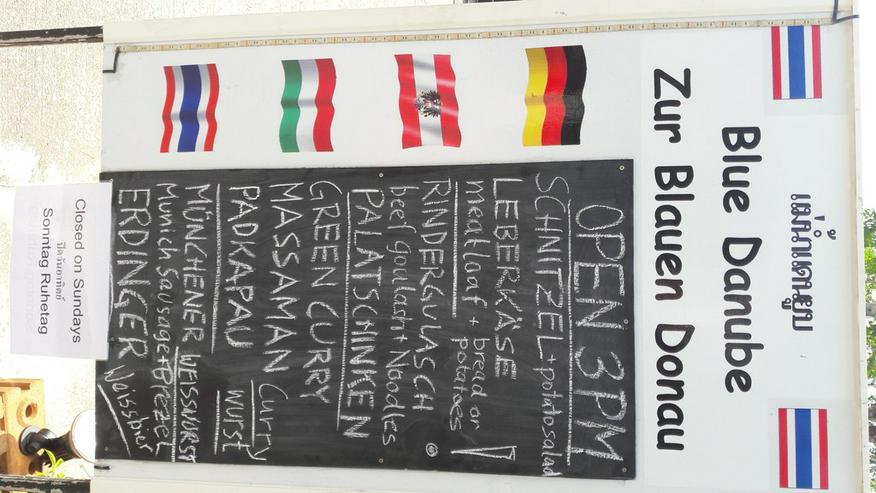 แม่น้ำดานูบ
Blue Danube
Zur Blauen Donau
OPEN 3PM
SCHNITZEL + potatosalad
LEBERKÄSE
meatloaf + bread or
potatoes
RINDERGULASCH
beef goulash + Noodles
PALATSCHINKEN
GREEN CURRY
MASSAMAN
PADKAPAU
Curry
WURST
MÜNCHENER WEISSWURST
Munich Sausage + Brezel
ERDINGER Weissbier
Closed on Sundays
ปิดวันอาทิตย์
Sonntag Ruhetag